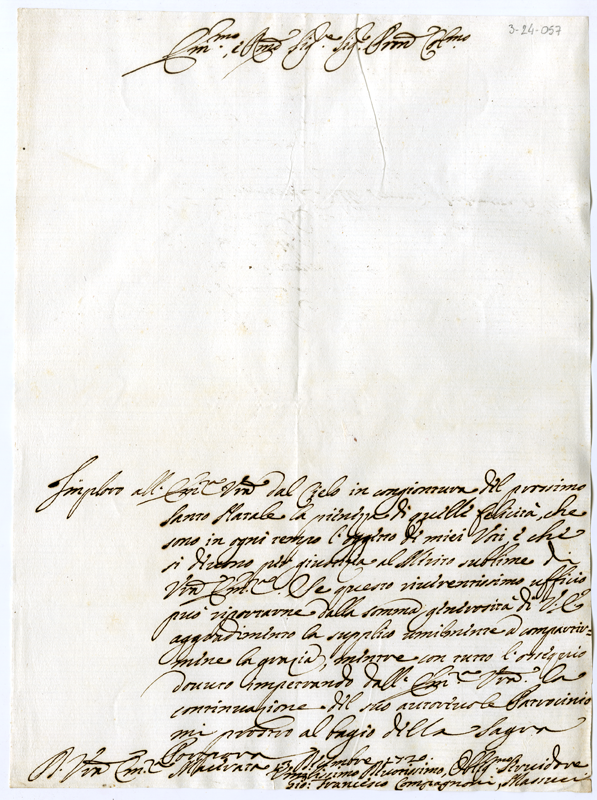 3-24-057
Em.mo, e Rmo Sig.re Sig.r Pron Col.mo
Imploro all' Em.za Vra dal Cielo in congiontura del prossimo
Santo Natale la pienezza di quelle felicità, che
sono in ogni tempo l'oggetto di miei Voti, e che
si devono per giustizia al Merito sublime di
Vra Em.za. Se questo riverentissimo ufficio
può riportarne dalla somma generosità di V. E.
aggradimento la supplico umilmente a compartir-
mene la grazia, mentre con tutto l'ossequio
dovuto impetrando dall' Em.za Vra la
continuazione del suo autorevole Patrocinio
mi porto al bagio della Sagra
Porpora
D. Vra Em.za Macerata 13 Dicembre 1720.
Umilissimo Divotissimo, Obl.mo Servidore
Gio: Francesco Compagnoni Marucci